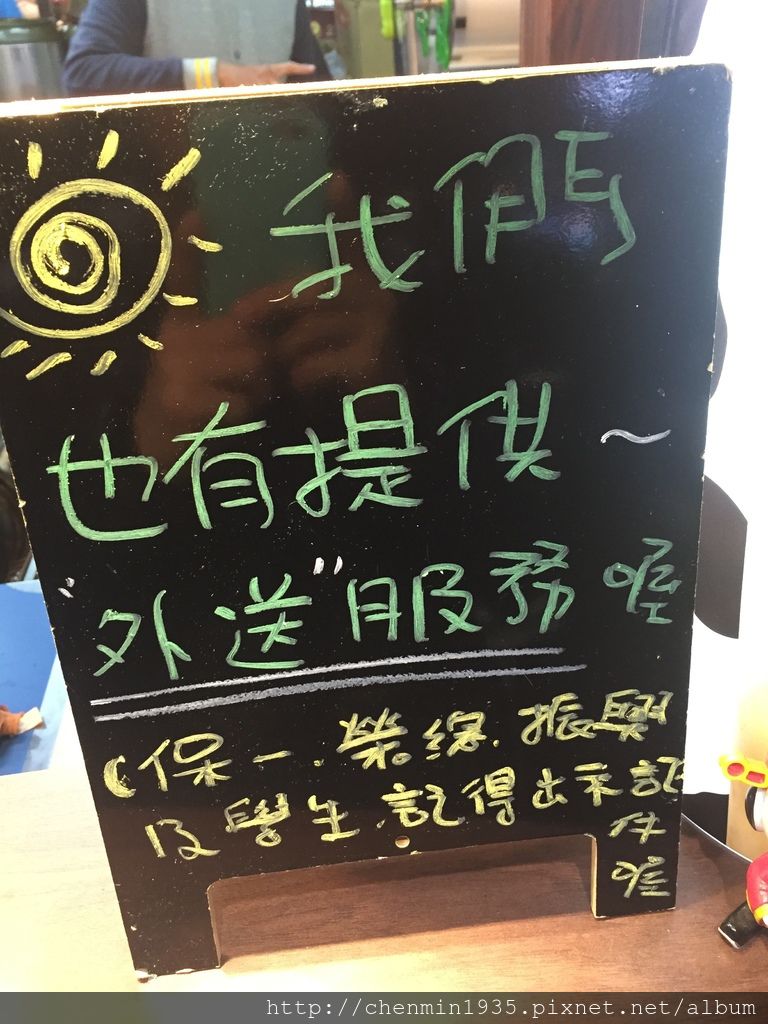 我們
也有提供～
"外送"服務喔
(保一.榮總.振興
及學生.記得出示証
件
http://chenmin1935.pixnet.net/album